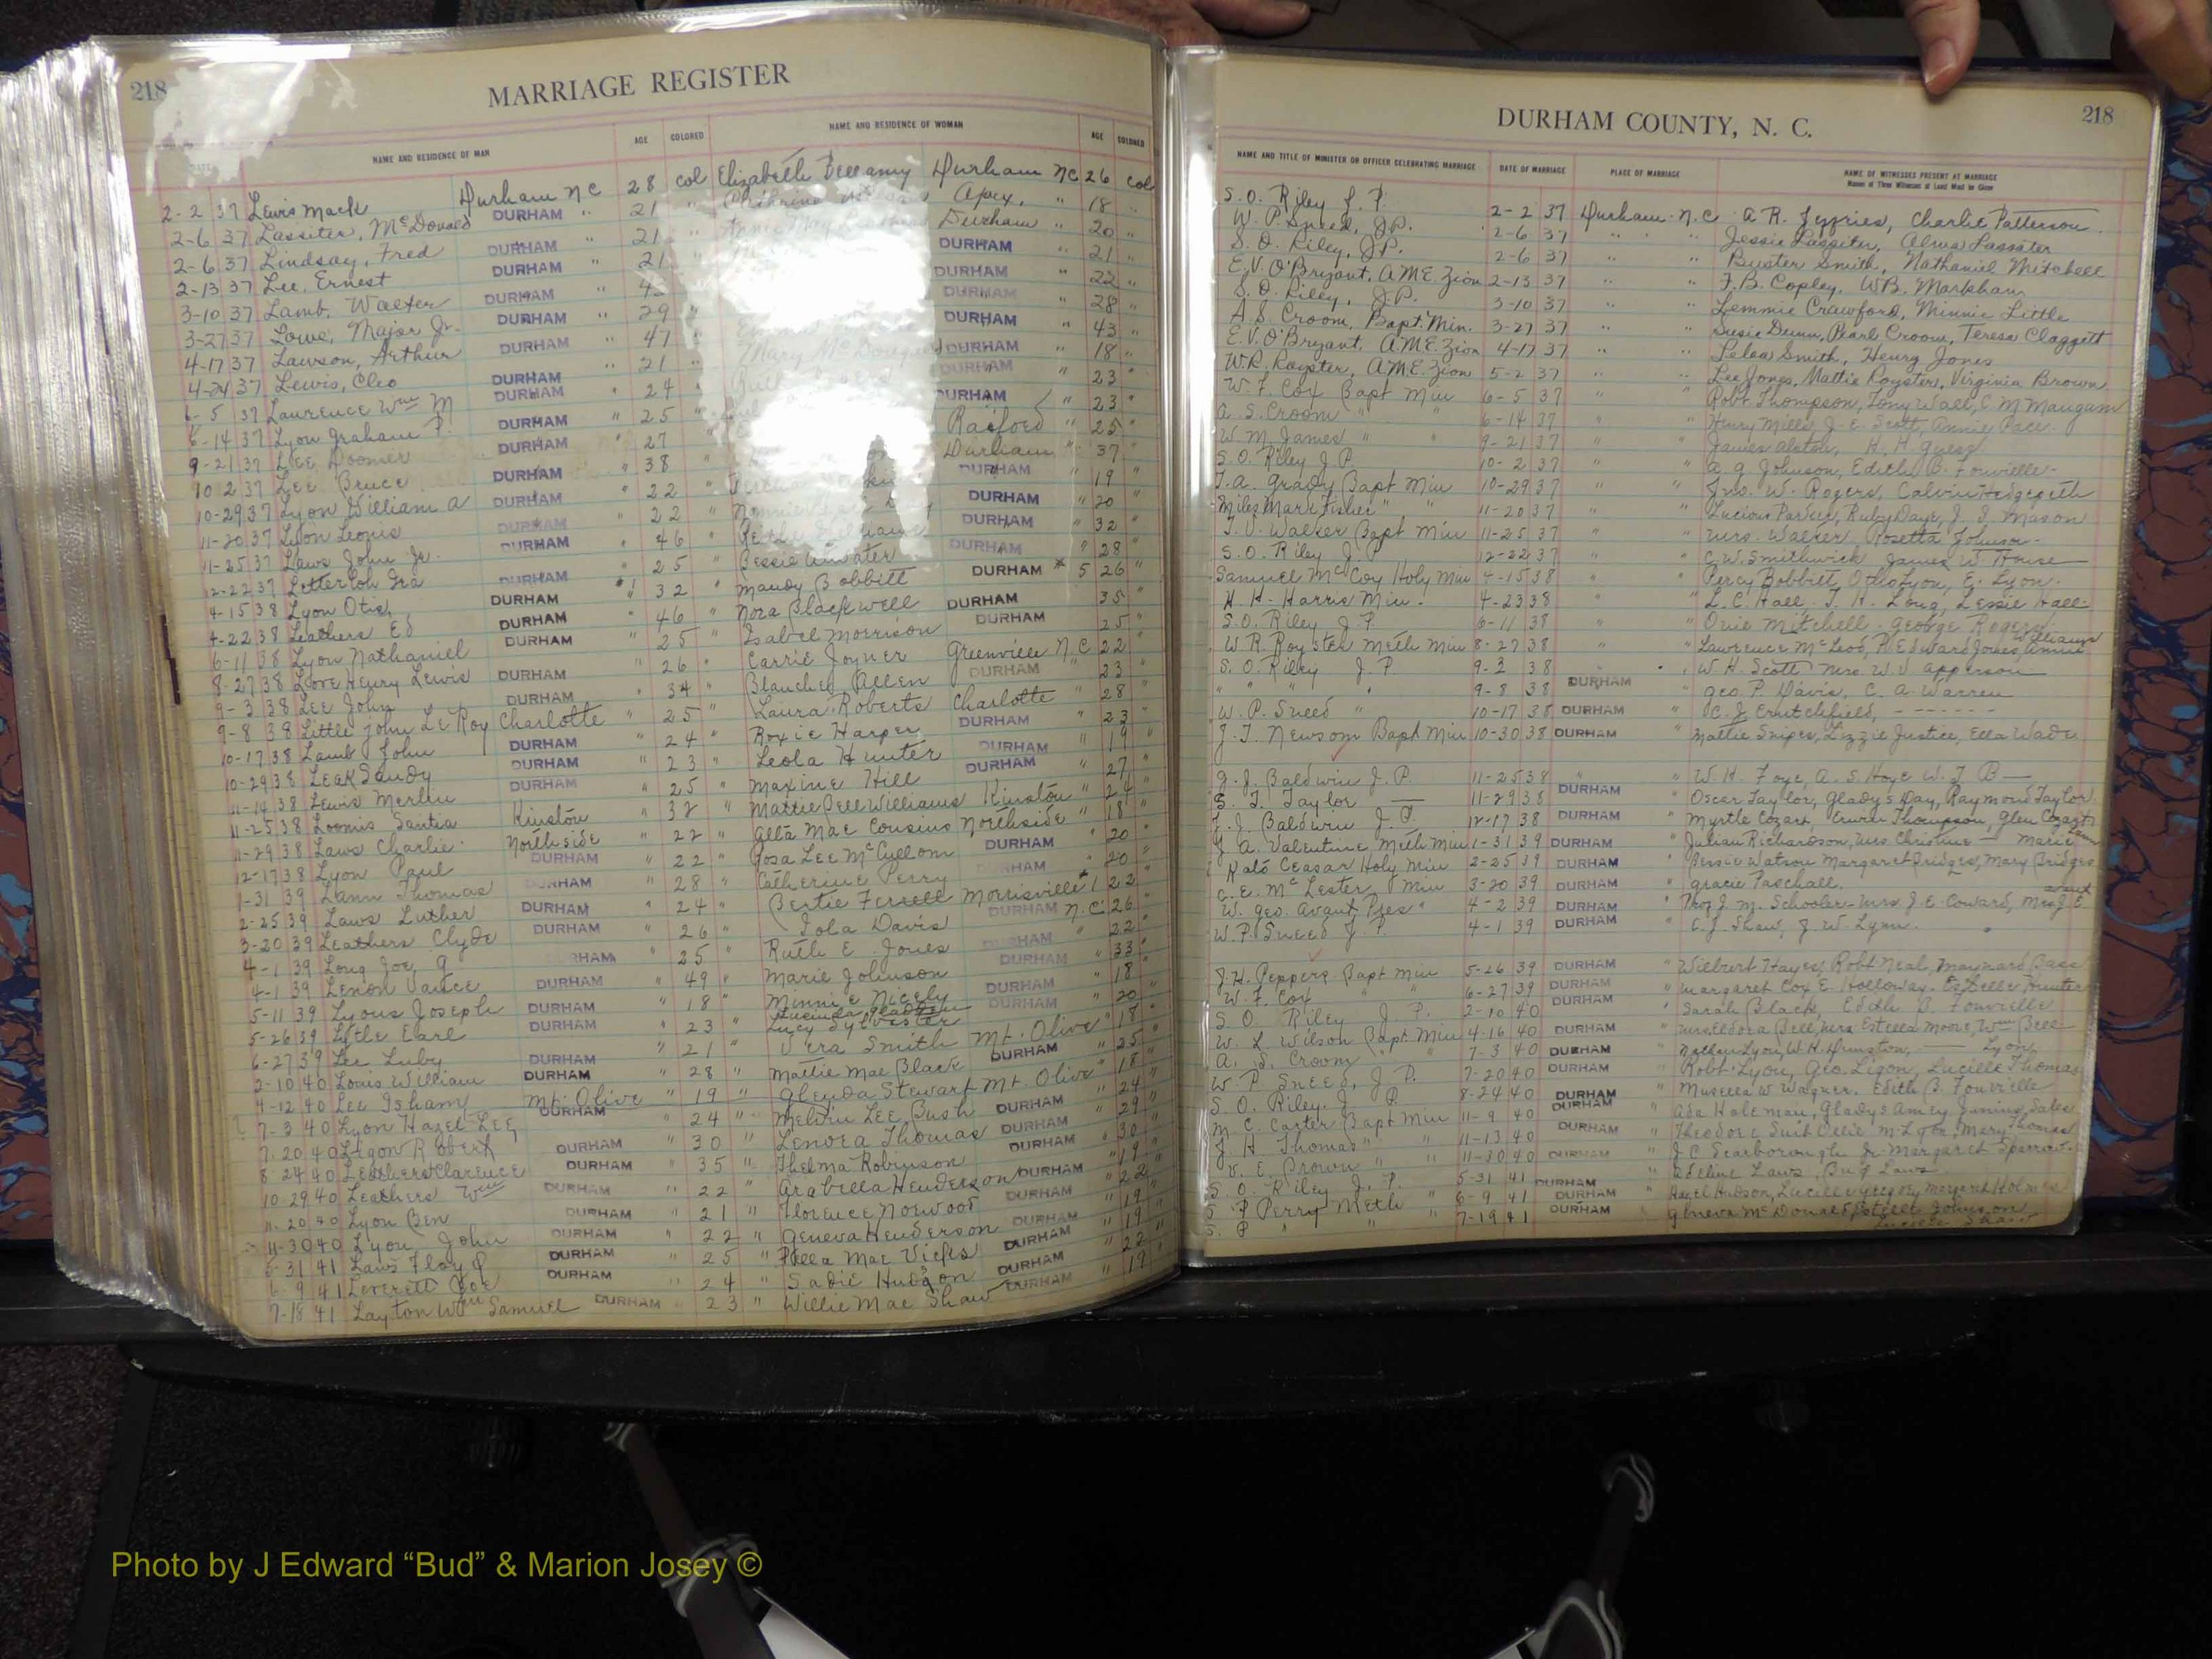 218
MARRIAGE REGISTER
NAME AND RESIDENCE OF MAN AGE COLORED NAME AND RESIDENCE OF WOMAN AGE COLORED
2-2 37 Lewis Mack Durham NC 28 col Elizabeth Bellamy Durham NC 26 col
2-6 37 Lassiter, McDonald DURHAM " 21 " Apex, " 18 "
2-6 37 Lindsay, Fred DURHAM " 21 " Annie May Durham " 20 "
2-13 37 Lee, Ernest DURHAM " 21 DURHAM " 21 "
3-10 37 Lamb, Walter DURHAM " DURHAM 22 "
3-27 37 Lowe, Major Jr. DURHAM " 29 " DURHAM 28 "
4-17 37 Lawson, Arthur DURHAM " 47 " DURHAM " 43 "
4-24 37 Lewis, Cleo DURHAM " 21 " Mary DURHAM " 18 "
6-5 37 Laurence Wm M DURHAM 24 " DURHAM 23 "
6-14 37 Lyon Graham P. DURHAM " 25 " DURHAM " 23 "
9-21 37 LEE DURHAM " 27 " Raeford " 25 "
10 2 37 LEE Bruce DURHAM 38 " Durham " 37
10-29 37 Lyon William A DURHAM " 22 " DURHAM " 19 "
11-20 37 Lyon Leonis DURHAM " 22 " DURHAM " 20 "
11-25 37 Laws John Jr. DURHAM " 46 " DURHAM " 32 "
12-22 37 Ira DURHAM " 25 " Bessie DURHAM " 28 "
4-15 38 Lyon Otis, DURHAM " 32 " Mandy Bobbitt DURHAM 26 "
4-22 38 Leathers Ed DURHAM 46 " Nora Blackwell DURHAM 35 "
6-11 38 Lyon Nathaniel DURHAM " 25 " Isabel Morrison DURHAM 25 "
8-27 38 Love Henry Lewis DURHAM 26 " Carrie Joyner Greenville N.C 22 "
9-3 38 LEE John DURHAM 34 " Blanche ALLEN DURHAM " 23 "
9-8 38 Little john LE Roy Charlotte " 25 " Laura Roberts Charlotte " 28 "
10-17 38 Lamb John DURHAM " 24 " Roxie Harper DURHAM " 23 "
10-29 38 LEAK Sandy DURHAM " 23 " Leola Hunter DURHAM " 19 "
11-14 38 Lewis Merlin DURHAM " 25 " Maxine Hill DURHAM 27 "
11-25 38 Loomis Santia Kinston " 32 " Mattie Bell Williams Kinston " 24 "
11-29 38 Laws Charlie Northside " 22 " Alta Mae Cousins Northside " 18 "
12-17 38 Lyon Paul DURHAM " 22 " Rosa LEE McCullom DURHAM " 20 "
1-31 39 Lann Thomas DURHAM " 28 " Catherine Perry DURHAM 20 "
2-25 39 Laws Luther DURHAM " 24 " Bertie Ferrell Morrisville 22 "
3-20 39 Leathers Clyde DURHAM " 26 " Iola Davis DURHAM N.C. 26 "
4-1 39 Long Joe, G DURHAM " 25 " Ruth E Jones DURHAM " 22 "
4-1 39 Lenon Vance DURHAM " 49 " Marie Johnson DURHAM " 33 "
5-11 39 Lyons Joseph DURHAM " 18 " Minnie Nicely DURHAM " 18 "
5-26 39 Lytle Earl DURHAM " 23 " Lucy Sylvester DURHAM " 20 "
6-27 39 Lee Luby DURHAM " 21 " Vera Smith Mt. Olive " 18 "
2-10 40 Louis William DURHAM " 28 " Mattie Mae Black DURHAM " 25 "
4-12 40 Lee Isham Mt. Olive " 19 " Glenda Stewart Mt. Olive " 18 "
7-3 40 Lyon Hazel LEE DURHAM " 24 " Melvin LEE Bush DURHAM " 24 "
7-20 40 Ligon Robert DURHAM " 30 " Lenora Thomas DURHAM " 29 "
8 24 40 Leathers Clarence DURHAM " 35 " Thelma Robinson DURHAM " 30 "
10-29 40 Leathers Wm DURHAM " 22 " Arabella Henderson DURHAM " 19 "
11-20 40 Lyon Ben DURHAM " 21 " Florence Norwood DURHAM " 22 "
11-30 40 Lyon John DURHAM " 22 " Geneva Henderson DURHAM " 19 "
5-31 41 Laws Floyd DURHAM " 25 " Della Mae Vicks DURHAM " 19 "
6-9 41 Leverett Joe DURHAM " 24 " Sadie Hudson DURHAM " 22 "
7-18 41 Layton Wm Samuel DURHAM " 23 " Willie Mae Shaw DURHAM " 19 "
DURHAM COUNTY, N. C. 218
NAME AND TITLE OF MINISTER OR OFFICER CELEBRATING MARRIAGE DATE OF MARRIAGE PLACE OF MARRIAGE NAME OF WITNESSES PRESENT AT MARRIAGE
Names of Three Witnesses at Least Must be Given
S.O. Riley J.P. 2-2 37 Durham N.C A R. Jeffries, Charlie Patterson
W. P. Sneed, J.P. 2-6 37 " " Jessie Lassiter, Alma Lassiter
S. O. Riley, J.P. 2-6 37 " " Buster Smith, Nathaniel Mitchell
E.V. O'Bryant, A.M.E. Zion 2-13 37 " " F.B. Copley, W.B. Markham
S. O. Riley, J.P. 3-10 37 " " Lemmie Crawford, Minnie Little
A.S. Croom, Bapt. Min. 3-27 37 " " Susie Dunn, Pearl Croom, Teresa Claggett
E.V. O'Bryant, A.M.E. Zion 4-17 37 " " Lelea Smith, Henry Jones
W.R. Royster, A.M.E. Zion 5-2 37 " " Lee Jones, Mattie Royster, Virginia Brown
W. F. Cox Bapt Min 6-5 37 " " Robt Thompson, Tony Wall, C M Mangum
A. S. Croom " " 6-14 37 " " Henry Mills, J. E. Scott, Annie Pace
W. M. James " " 9-21 37 " " James Alston, H. H
S.O. Riley J P 10-2 37 " " A. G Johnson, Edith B. Fonvielle
T.A. Grady Bapt Min 10-29 37 " " Jno. W. Rogers, Calvin Hedgepeth
Miles Mark Fisher " " 11-20 37 " " Lucious Parker, Ruby Daye, J. J. Mason
T. V. Walker Bapt Min 11-25 37 " " Mrs. Walker, Rosetta Johnson
S. O. Riley J P 12-22 37 " " C. W. Smithwick James W House
Samuel McCoy Holy Min 4-15 38 " " Percy Bobbitt, Otho Lyon, E. Lyon
H. H. Harris Min. 4-23 38 " " L. C. Hall, T. H. Long, Lessie Hall
S.O. Riley J.P. 6-11 38 " " Ovie Mitchell George Rogers
W R. Royster Meth Min 8-27 38 " " Lawrence McLeod, R. Edward Jones, Annie Williams
S. O. Riley J P. 9-3 38 " W. H. Scott Mrs. W. J Apperson
" " " 9-8 38 DURHAM " Geo. P. Davis, C. A. Warren
W. P. Sneed " 10-17 38 DURHAM " C. J Crutchfield,
J. T. Newsom Bapt Min 10-30 38 DURHAM " Mattie Snipes, Lizzie Justice, Ella Wade
G. J. Baldwin J. P. 11-25 38 " " W. H. Foye, A. S. Hoye W. T B
S. T. Taylor 11-29 38 DURHAM " Oscar Taylor, Gladys Day, Raymond Taylor
J. J. Baldwin J. P. 12-17 38 DURHAM " Myrtle Cozart, Erwin Thompson, Glen Cozart
J. A. Valentine Meth Min 1-31 39 DURHAM " Julian Richardson, Mrs. Christine — Marie Lann
Kato Ceasar Holy Min 2-25 39 DURHAM " Bessie Watson Margaret Bridges, Mary Bridges
C. E. McLester Min 3-20 39 DURHAM " Gracie Paschall.
W. Geo. Avant Pres " 4-2 39 DURHAM " Prof J. M. Schooler-Mrs J. E. Coward, Mrs J. E. Avant
W. P. Sneed J. P. 4-1 39 DURHAM " C. J Shaw, J. W. Lynn.
J. H. Peppers Bapt Min 5-26 39 DURHAM " Wilbert Hayes, Robt Neal, Maynard Bass
W. F. Cox " " 6-27 39 DURHAM " Margaret Cox E. Holloway Estelle Hunter
S. O. Riley J. P. 2-10 40 DURHAM " Sarah Black, Edith B. Fonvielle
W. L. Wilson Bapt Min 4-16 40 DURHAM " Mrs Eldora Bell, Mrs Estella Moore, Wm Bell
A. S. Croom " " 7-3 40 DURHAM " Nathan Lyon, W. H. Dunston, — Lyon
W P Sneed, J. P. 7-20 40 DURHAM " Robt Lyon, Geo. Ligon, Lucille Thomas
S. O. Riley. J P. 8-24 40 DURHAM " W Wagner. Edith B. Fonvielle
M. C. Carter Bapt Min 11-9 40 DURHAM " Ada Holeman, Gladys Amey Janing Sales
J. H Thomas " " 11-13 40 DURHAM " Theodore Suit Ollie M. Lyon, Mary Thomas
E. Brown " " 11-30 40 DURHAM " J C Scarborough Jr. Margaret Sparrow
S. O. Riley J. P. 5-31 41 DURHAM " Adeline Laws Laws
S P Perry Meth " 6-9 41 DURHAM " Hazel Hudson, Lucille Margaret Holmes
S. P " " 7-19 41 DURHAM " Geneva McDonald Estelle Johnson
Lucille Shaw
Photo by J Edward “Bud” & Marion Josey ©